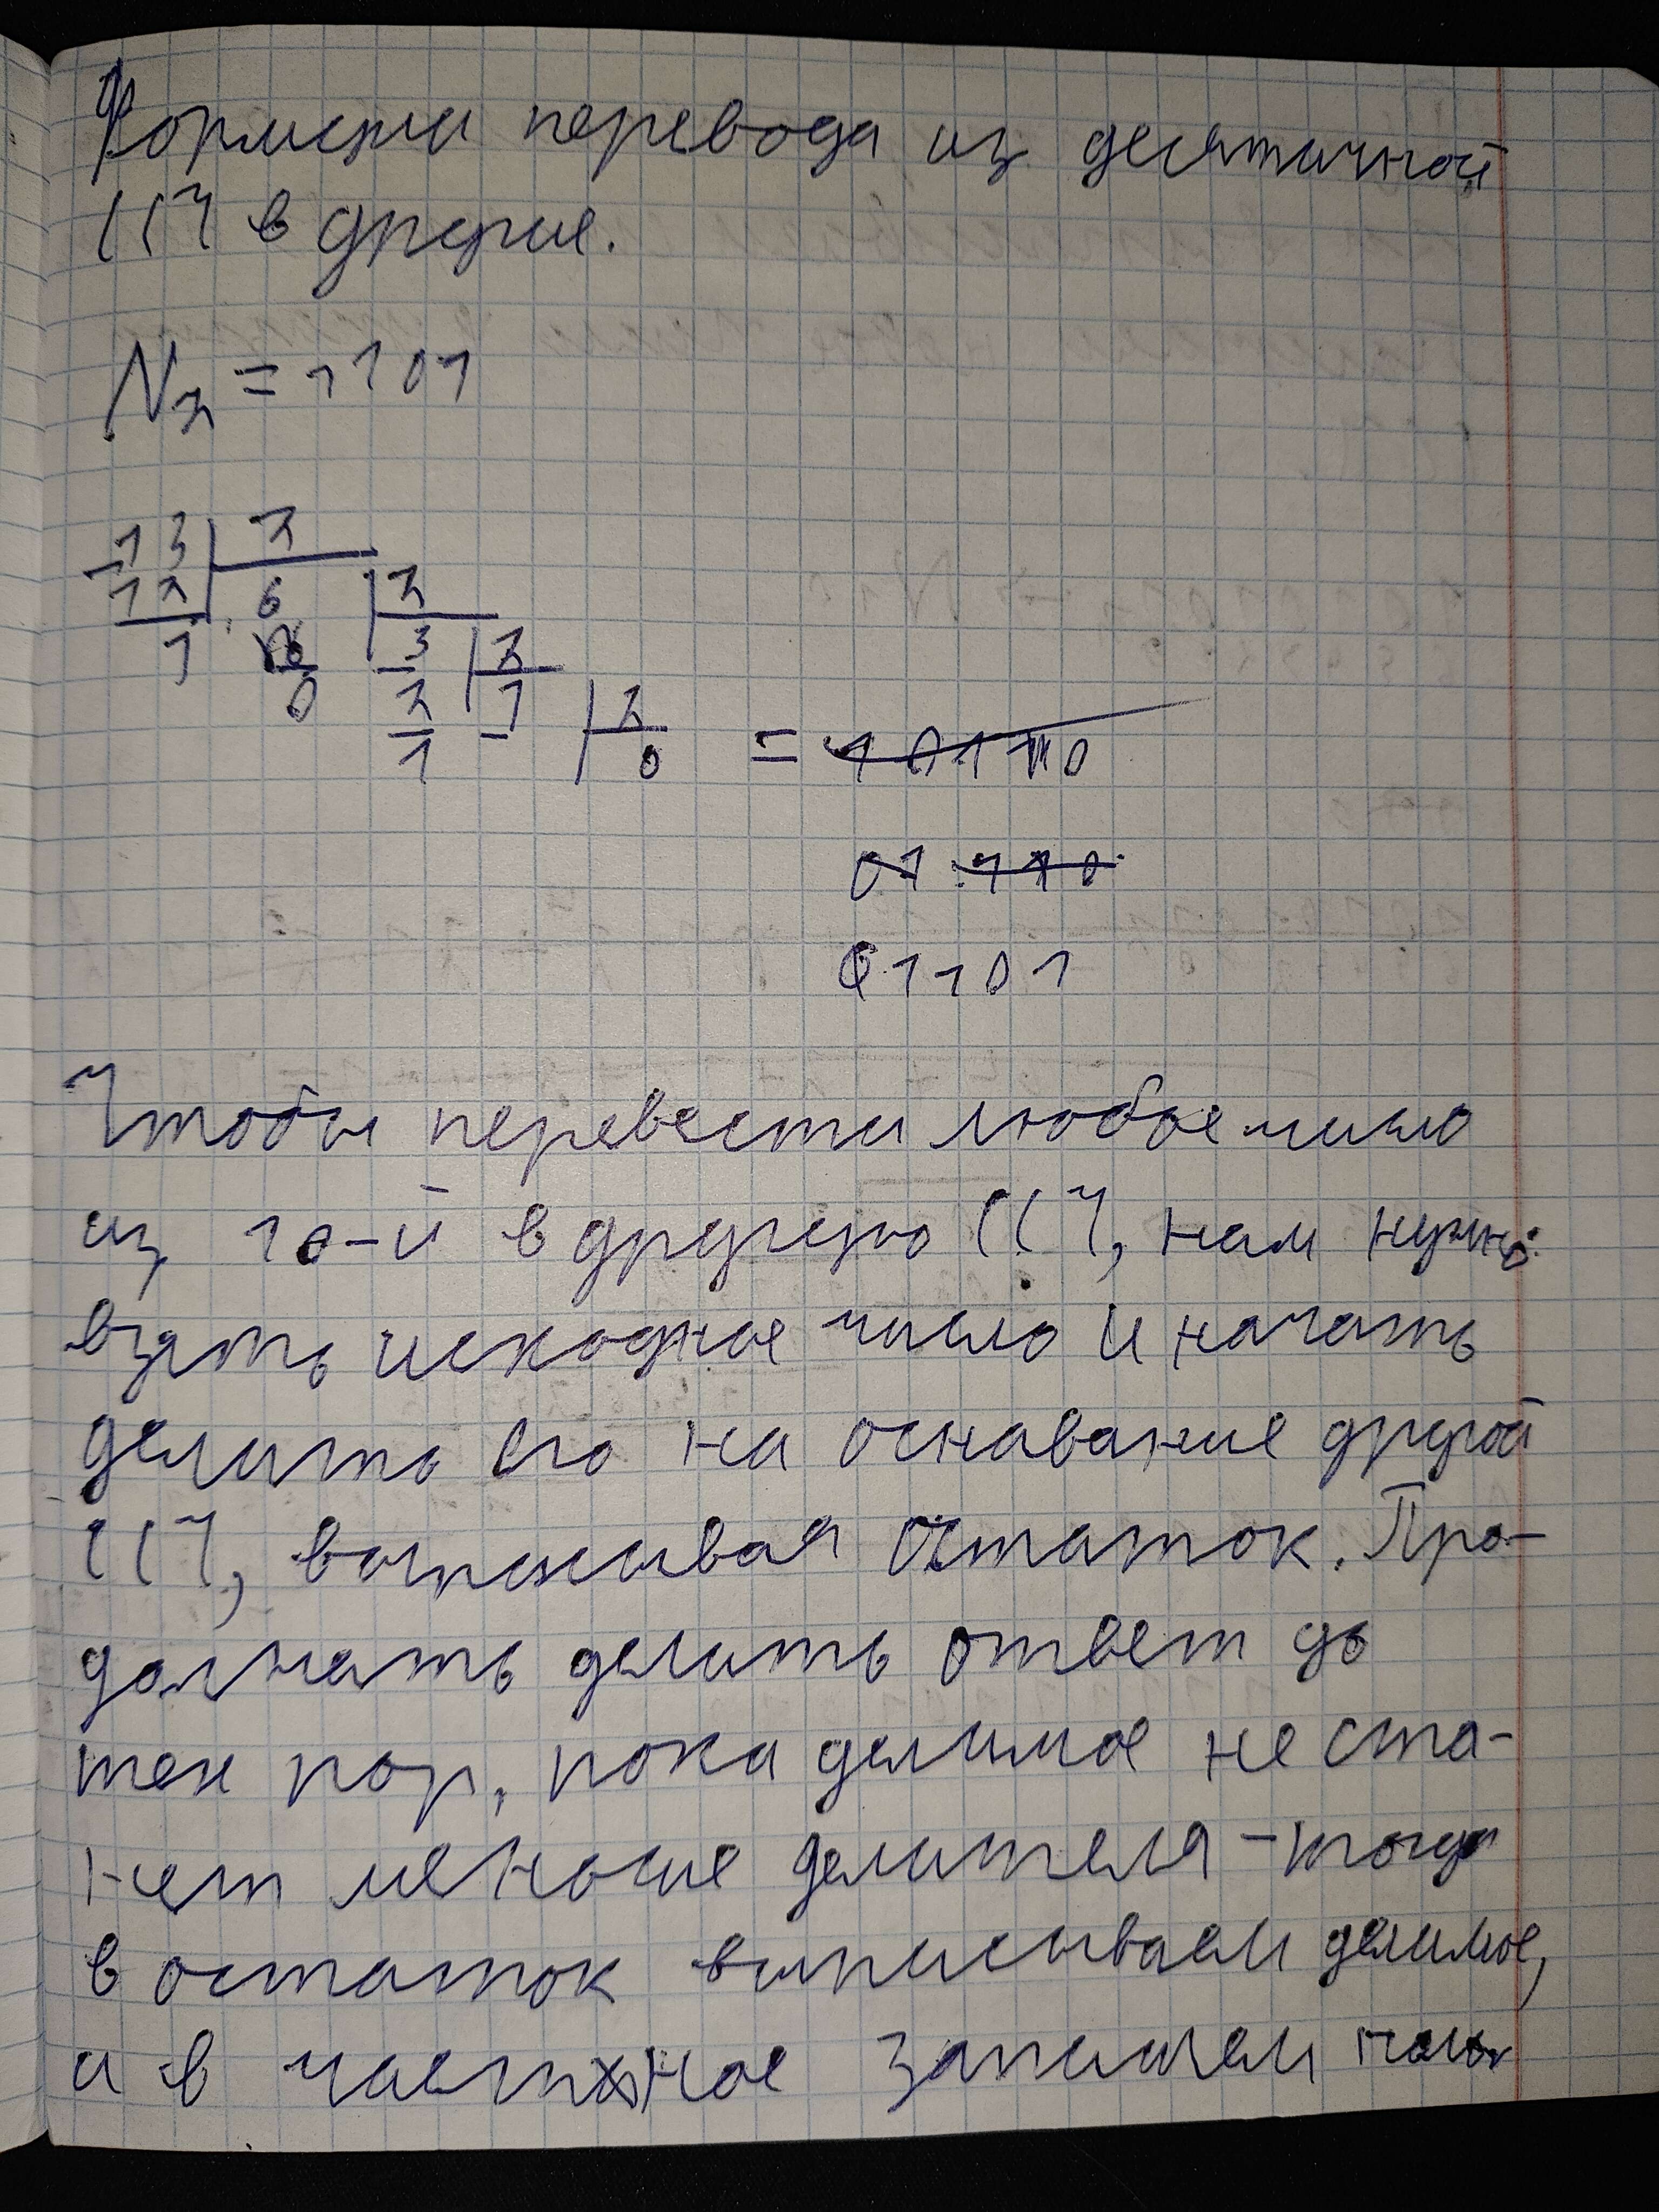 Формулы перевода из десятичной
ССЧ в другие.
N₂ = 1101
13 2
12 6 2
1 6 3 2
0 2 1 2
1 0 = 101110
01 110
01101
Чтобы перевести любое число
из 10-й в другую ССЧ, нам нужно:
взять исходное число и начать
делить его на оснавание другой
ССЧ, выписывая остаток. Про-
должать делить ответ до
тех пор, пока делимое не ста-
нет меньше делителя - тогда
в остаток выписываем делимое,
и в частное запишем ноль